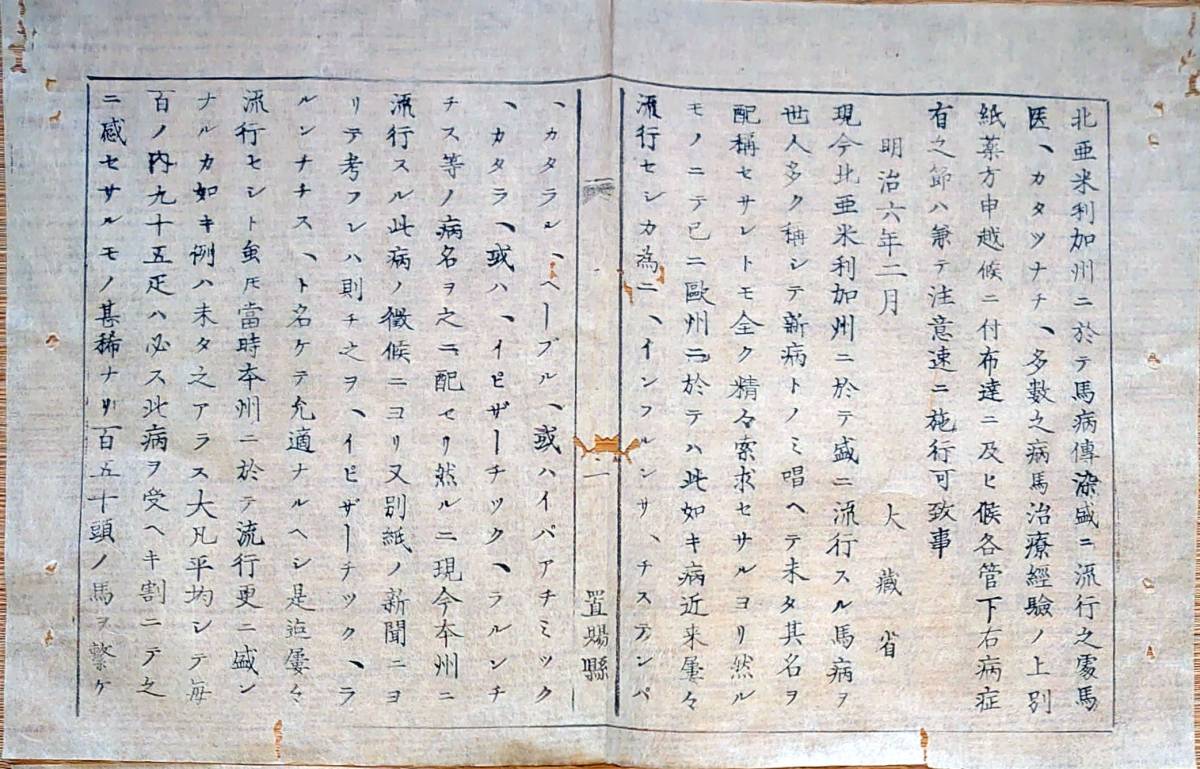 北亜米利加州ニ於テ馬病傳染盛ニ流行之處馬
医、カタツナチ、多數之病馬治療經驗ノ上別
紙薬方申越候ニ付布達ニ及ヒ候各管下右病症
有之節ハ兼テ注意速ニ施行可致事
明治六年二月　大藏省
現今北亜米利加州ニ於テ盛ニ流行スル馬病ヲ
世人多ク稱シテ新病トノミ唱ヘテ未タ其名ヲ
配稱セサレトモ全ク精々索求セサルヨリ然ル
モノニテ已ニ歐州ニ於テハ此如キ病近来屢々
流行セシカ為ニ、インフルンサ、チステンパ
置賜縣
、カタラル、ヘーブル、或ハイパアチミック
、カタラ、或ハ、イピザーチック、ラルンチ
チス等ノ病名ヲ之ニ配セリ然ルニ現今本州ニ
流行スル此病ノ徴候ニヨリ又別紙ノ新聞ニヨ
リテ考フレハ則チ之ヲ、イピザーチック、ラ
ルンナチス、ト名ケテ允適ナルヘシ是迠屢々
流行セシト虽𪜈當時本州ニ於テ流行更ニ盛ン
ナルカ如キ例ハ未タ之アラス大凡平均シテ毎
百ノ内九十五疋ハ必ス此病ヲ受ヘキ割ニテ之
ニ感セサルモノ甚稀ナリ百五十頭ノ馬ヲ繋ケ